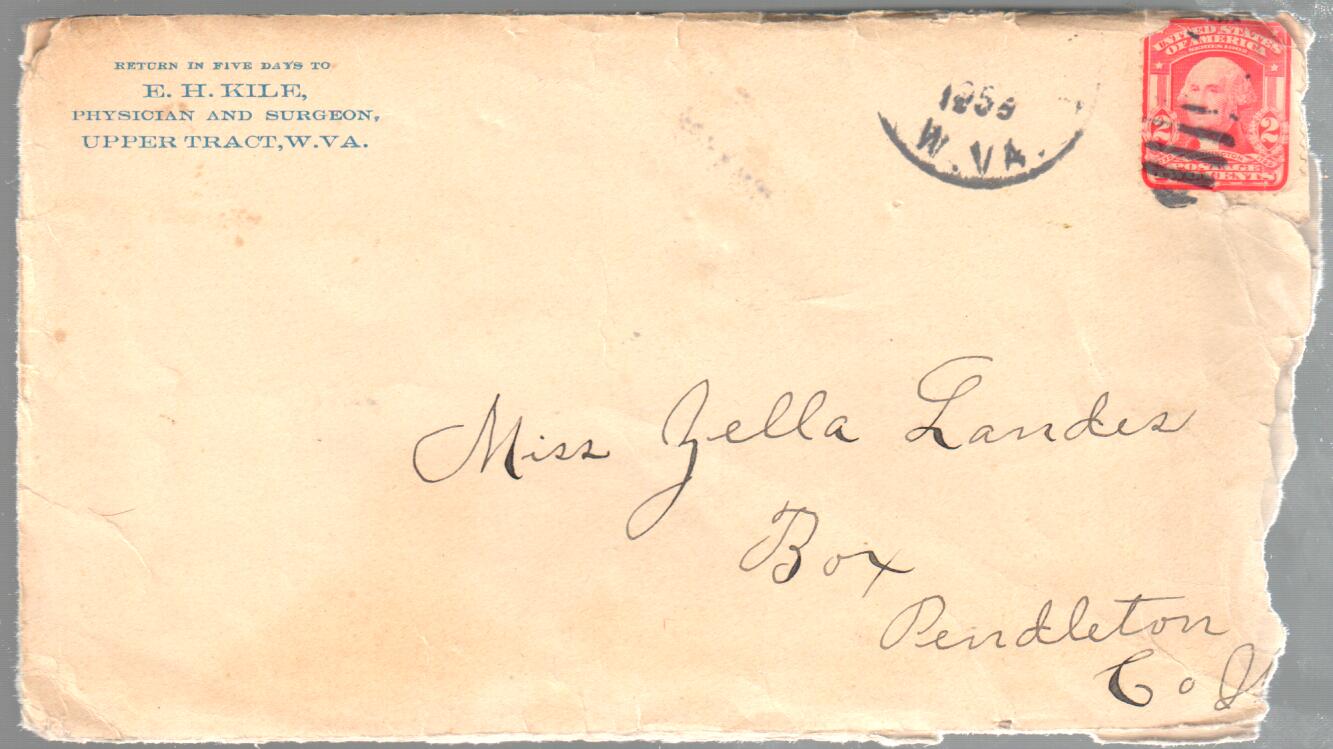 RETURN IN FIVE DAYS TO
E. H. KILE,
PHYSICIAN AND SURGEON,
UPPER TRACT, W. VA.
W. VA.
UNITED STATES
OF AMERICA
2 2
POSTAGE
Miss Zella Landes
Box
Pendleton
Co